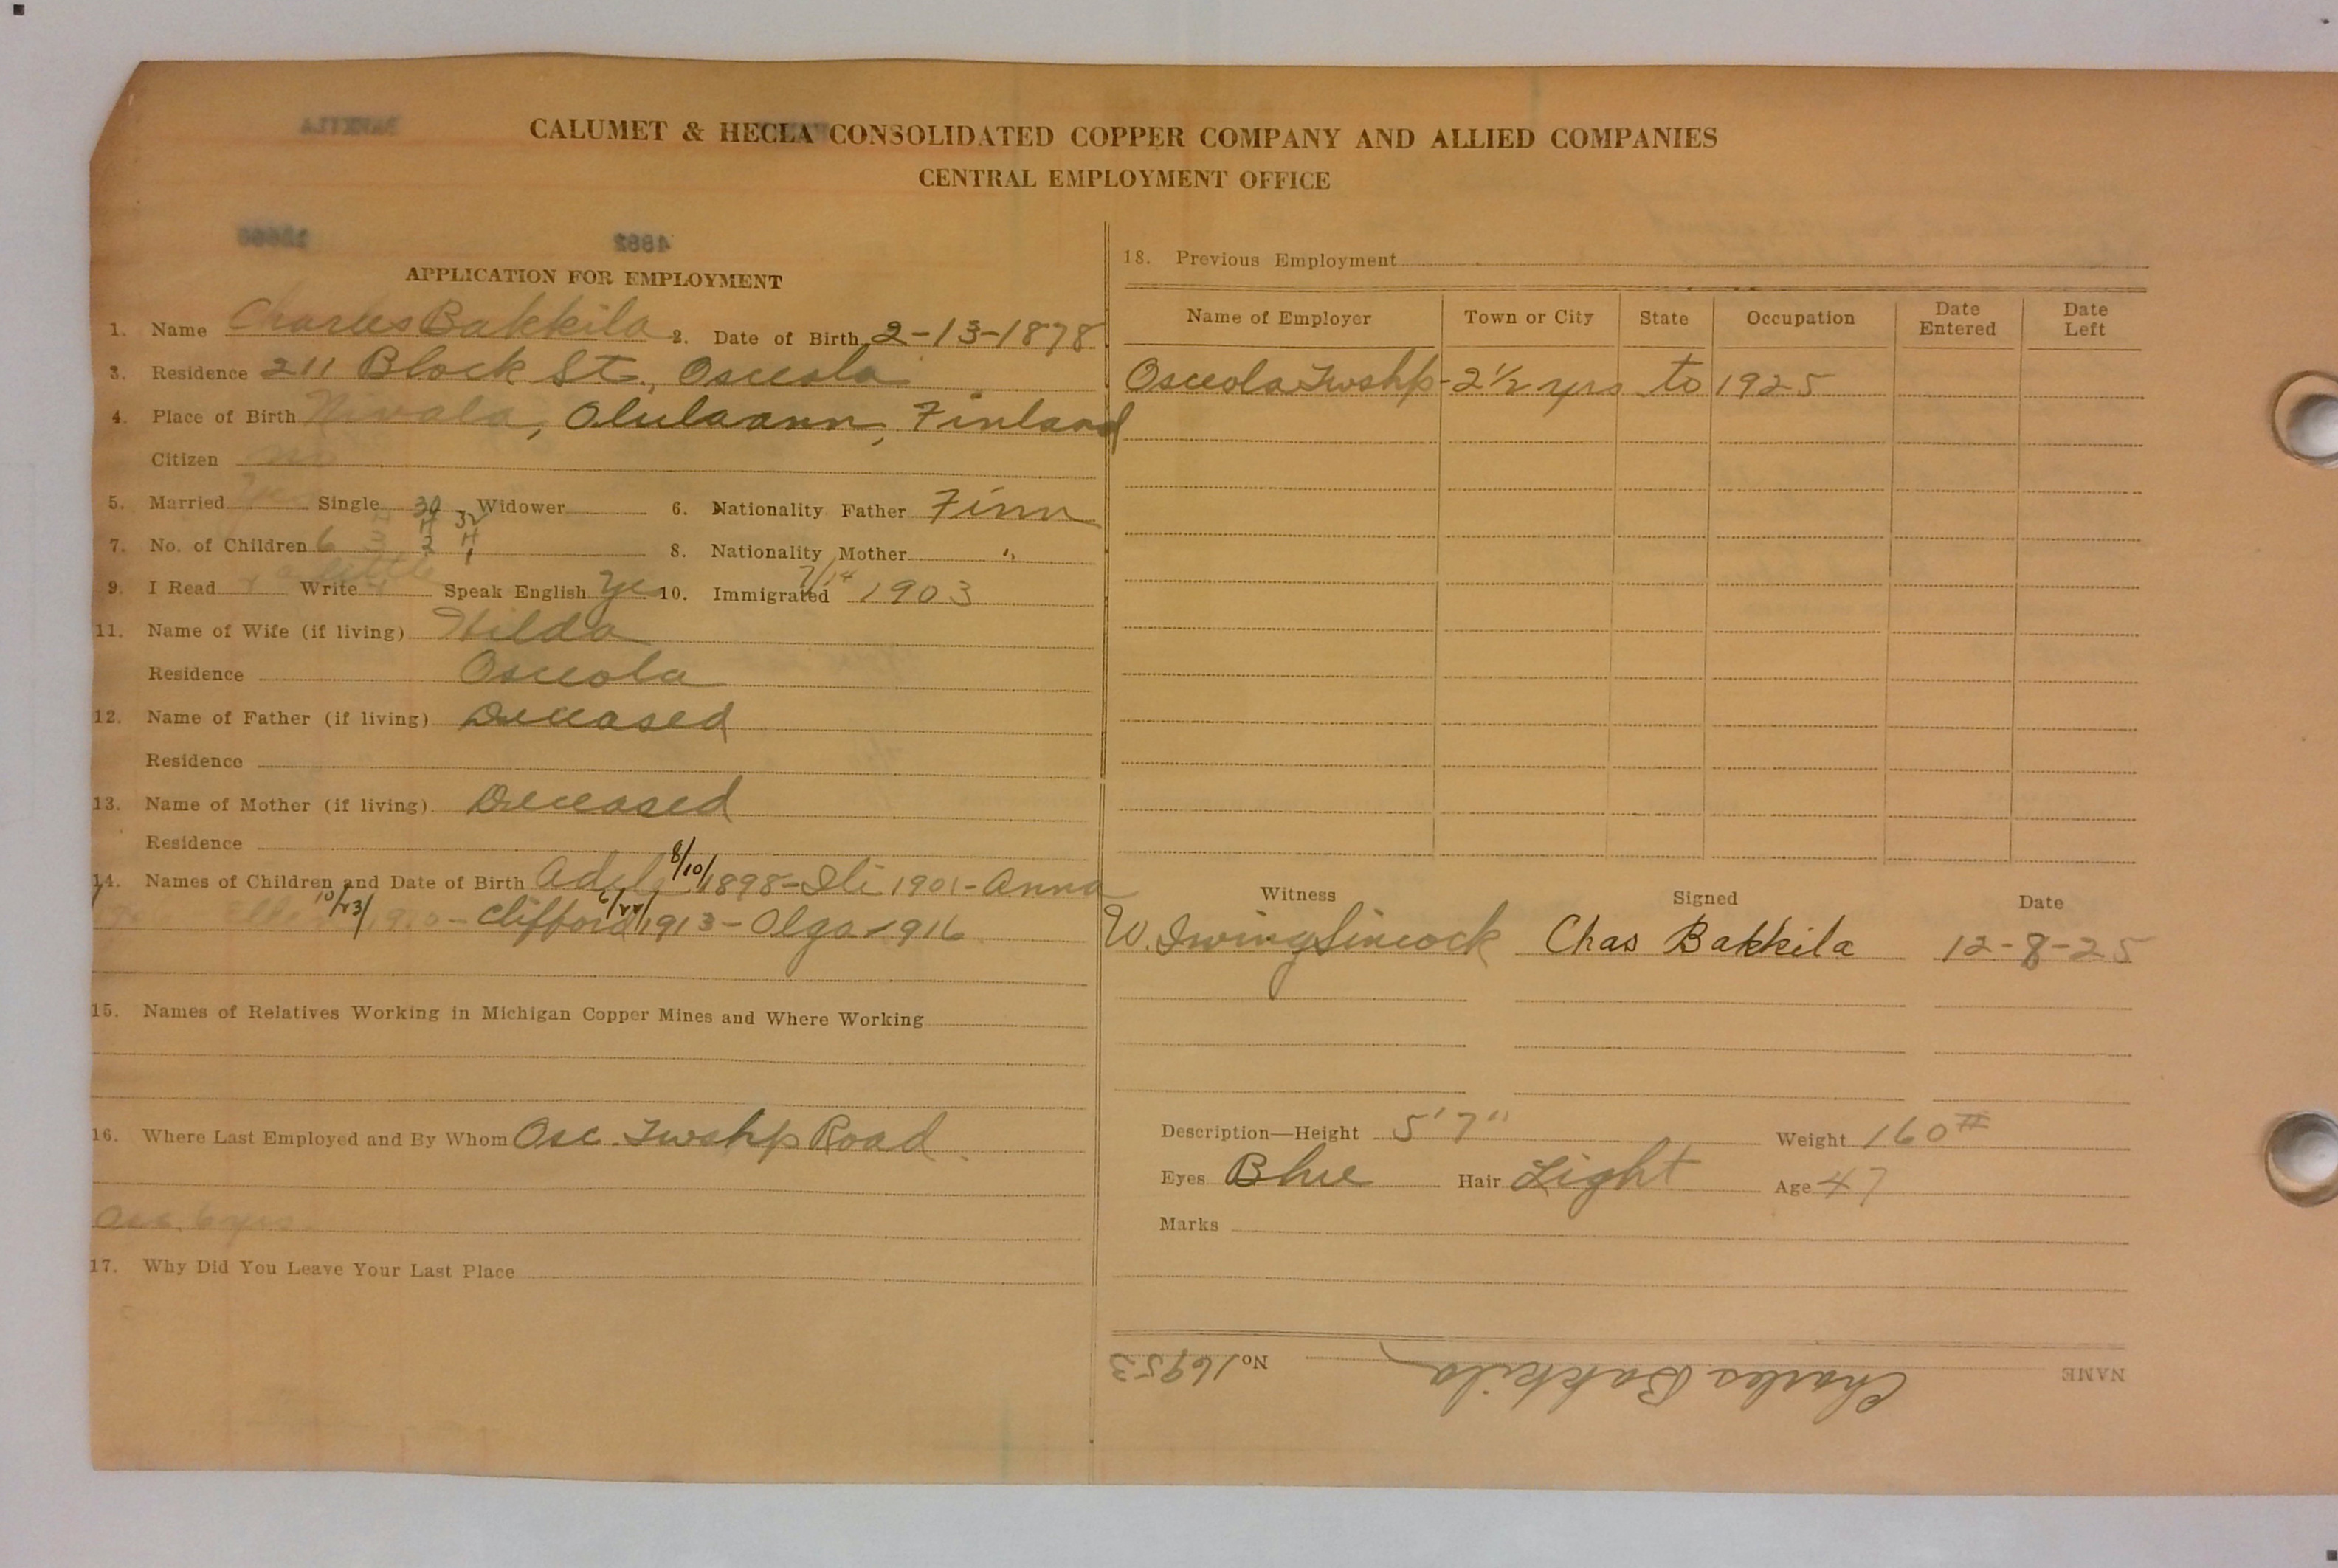 CALUMET & HECLA CONSOLIDATED COPPER COMPANY AND ALLIED COMPANIES
CENTRAL EMPLOYMENT OFFICE
4882
APPLICATION FOR EMPLOYMENT
1. Name Charles Bakkila 2. Date of Birth 2-13-1878
3. Residence 211 Block St., Osceola
4. Place of Birth Nivala, Olulaann, Finland
Citizen no
5. Married Yes Single 30 32 Widower 6. Nationality Father Finn
7. No. of Children 6 3 2 1 8. Nationality Mother "
9. I Read a little Write Speak English Yes 10. Immigrated 7/14 1903
11. Name of Wife (if living) Hilda
Residence Osceola
12. Name of Father (if living) Deceased
Residence
13. Name of Mother (if living) Deceased
Residence
14. Names of Children and Date of Birth 8/10/1898 - Ili 1901 - Anna
10/23/ 1910 - Clifford 6/22/1913 - Olga - 1916
15. Names of Relatives Working in Michigan Copper Mines and Where Working
16. Where Last Employed and By Whom Osc. Twshp Road
Osc. 6 yrs
17. Why Did You Leave Your Last Place
18. Previous Employment
Name of Employer Town or City State Occupation Date Entered Date Left
Osceola Twshp - 2 1/2 yrs to 1925
Witness Signed Date
W. Irwing Sincock Chas Bakkila 12-8-25
Description—Height 5'7" Weight 160#
Eyes Blue Hair Light Age 47
Marks
NAME Charles Bakkila No 16953